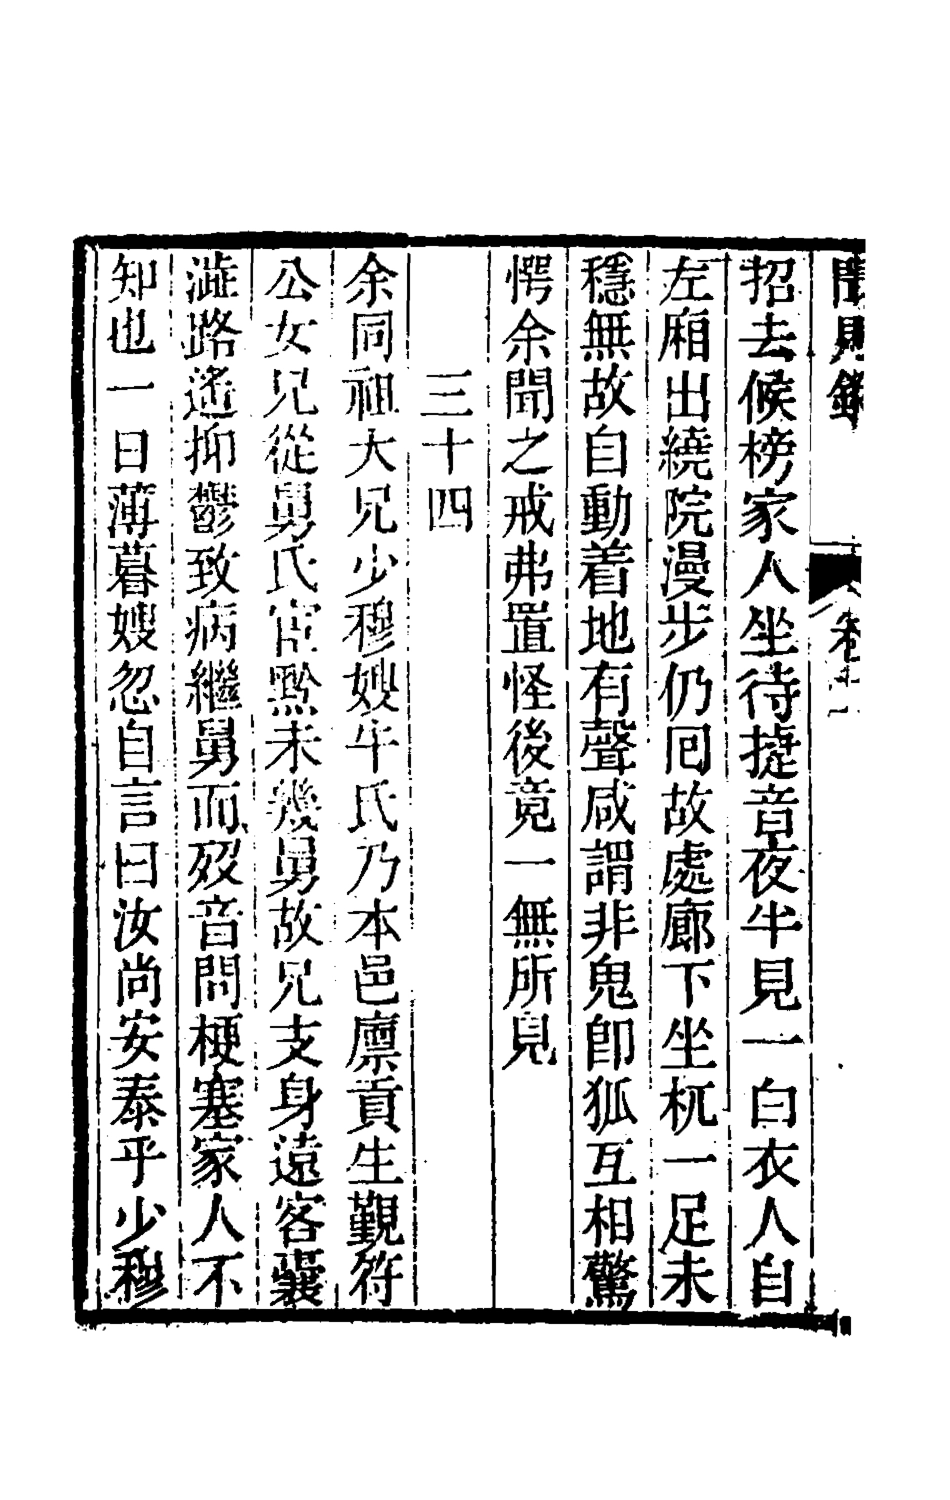 聞見錄
卷十一
招去候榜家人坐待捷音夜半見一白衣人自
左廂出繞院漫步仍囘故處廊下坐杌一足未
穩無故自動着地有聲咸謂非鬼卽狐互相驚
愕余聞之戒弗置怪後竟一無所見
三十四
余同祖大兄少穆嫂牛氏乃本邑廩貢生覲符
公女兄從舅氏宦黔未幾舅故兄支身遠客囊
澁路遙抑鬱致病繼舅而歿音問梗塞家人不
知也一日薄暮嫂忽自言曰汝尚安泰乎少穆